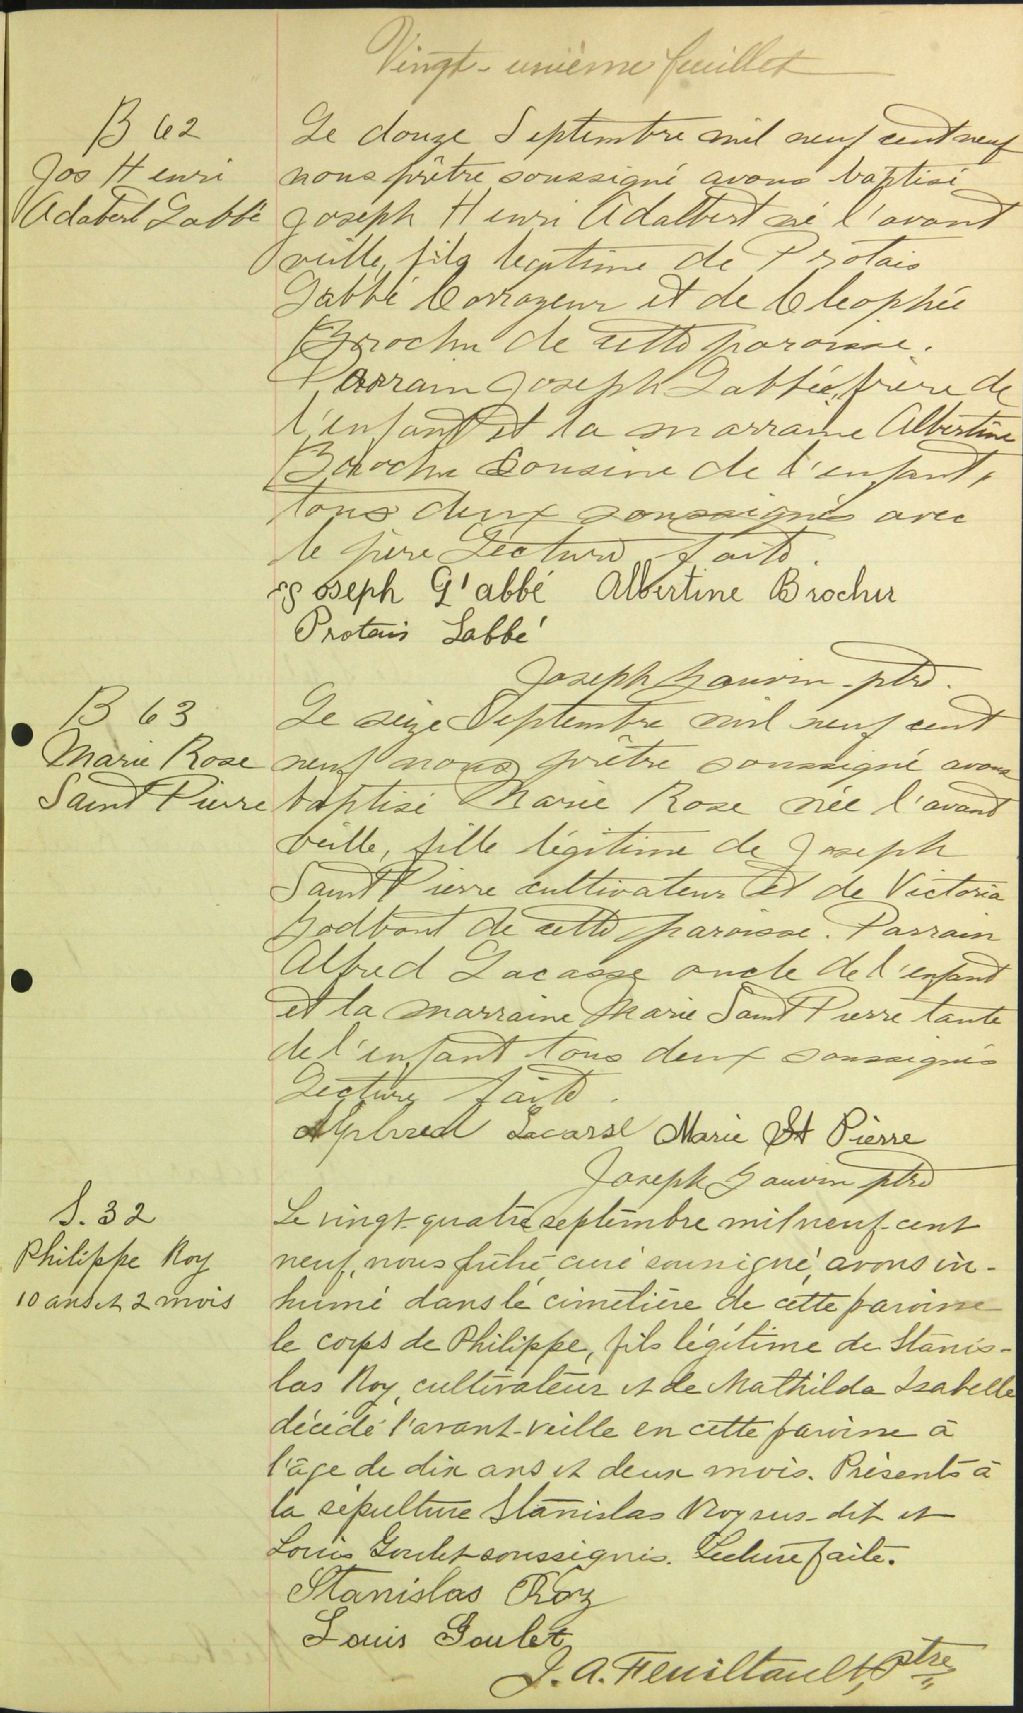 Vingt-unième feuillet
B 62
Jos Henri
Adabert Labbé
Le douze Septembre mil neuf cent neuf
nous prêtre soussigné avons baptisé
Joseph Henri Adalbert né l'avant
veille, fils legitime de Protais
Labbé Corroyeur et de Cleophée
Brochu de cette paroisse.
Parrain Joseph Labbée frère de
l'enfant et la marraine Albertine
Brochu Cousine de l'enfant,
tous deux soussignés avec
le père Lecture faite.
Joseph L'abbé Albertine Brochu
Protais Labbé
Joseph Gauvin ptre.
B 63
Marie Rose
Saint Pierre
Le seize Septembre mil neuf cent
neuf nous prêtre soussigné avons
baptisé Marie Rose née l'avant
veille, fille légitime de Joseph
Saint Pierre cultivateur et de Victoria
Godbout de cette paroisse. Parrain
Alfred Lacasse oncle de l'enfant
et la marraine Marie Saint Pierre tante
de l'enfant tous deux soussignés
Lecture faite.
Alphred Lacasse Marie St Pierre
Joseph Gauvin ptre
S. 32
Philippe Roy
10 ans et 2 mois
Le vingt-quatre septembre mil neuf-cent
neuf, nous prêtre curé soussigné, avons in-
humé dans le cimetière de cette paroisse
le corps de Philippe, fils légitime de Stanis-
las Roy, cultivateur et de Mathilda Isabelle
décédé l'avant-veille en cette paroisse à
l'âge de dix ans et deux mois. Présents à
la sépulture Stanislas Roy sus-dit et
Louis Goulet soussignés. Lecture faite.
Stanislas Roy
Louis Goulet
J. A. Feuiltault, Ptre